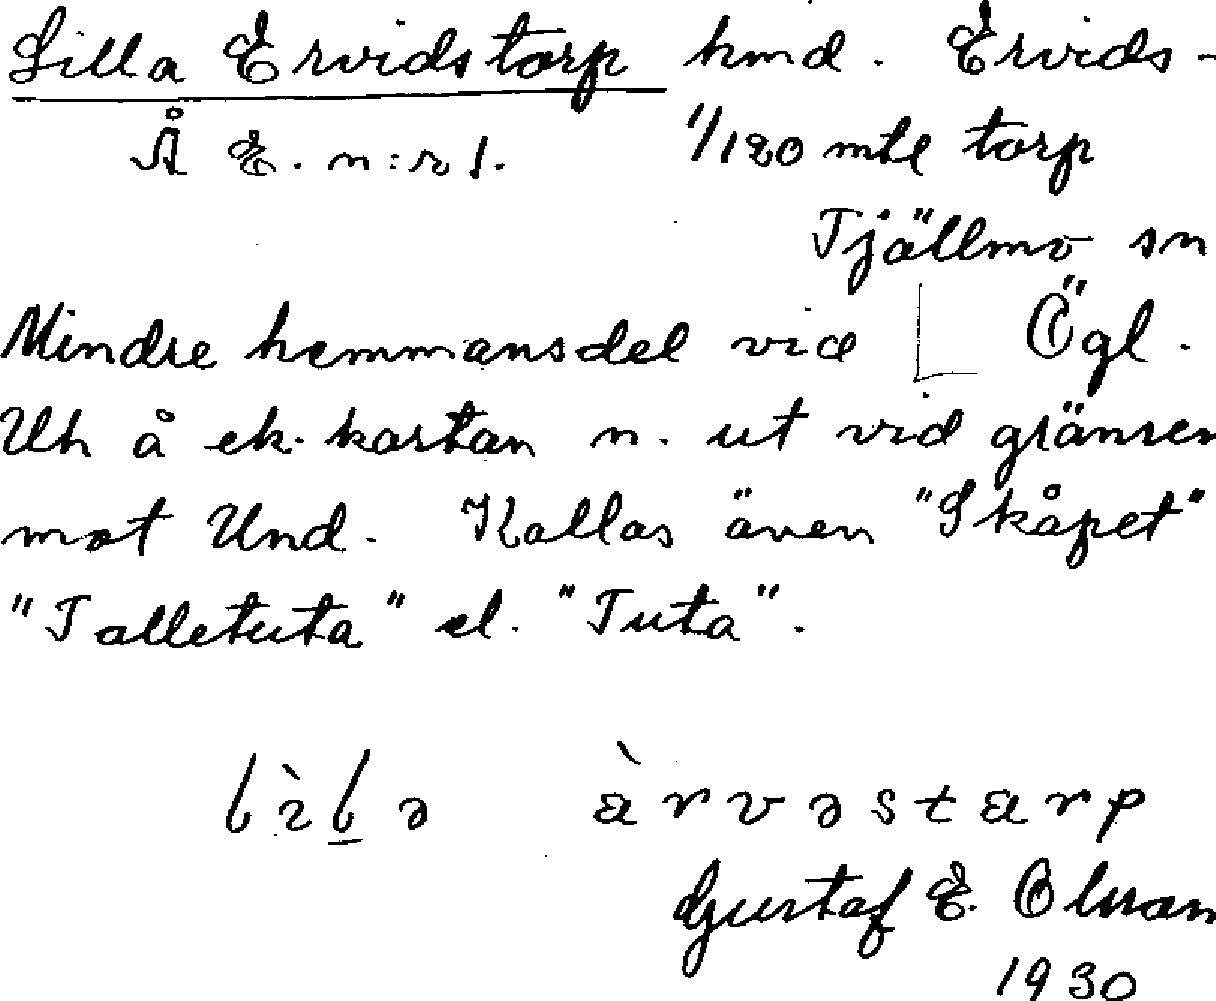 Lilla Ervidstorp hmd. Ervids-
Å E. n:r 1. 1/120 mtl torp
Tjällmo sn
Mindre hemmansdel vid Ögl.
Uh å ek. kartan n. ut vid gränsen
mot Und. Kallas även "Skåpet"
"Talletuta" el. "Tuta".
Gustaf E. Olsson
1930